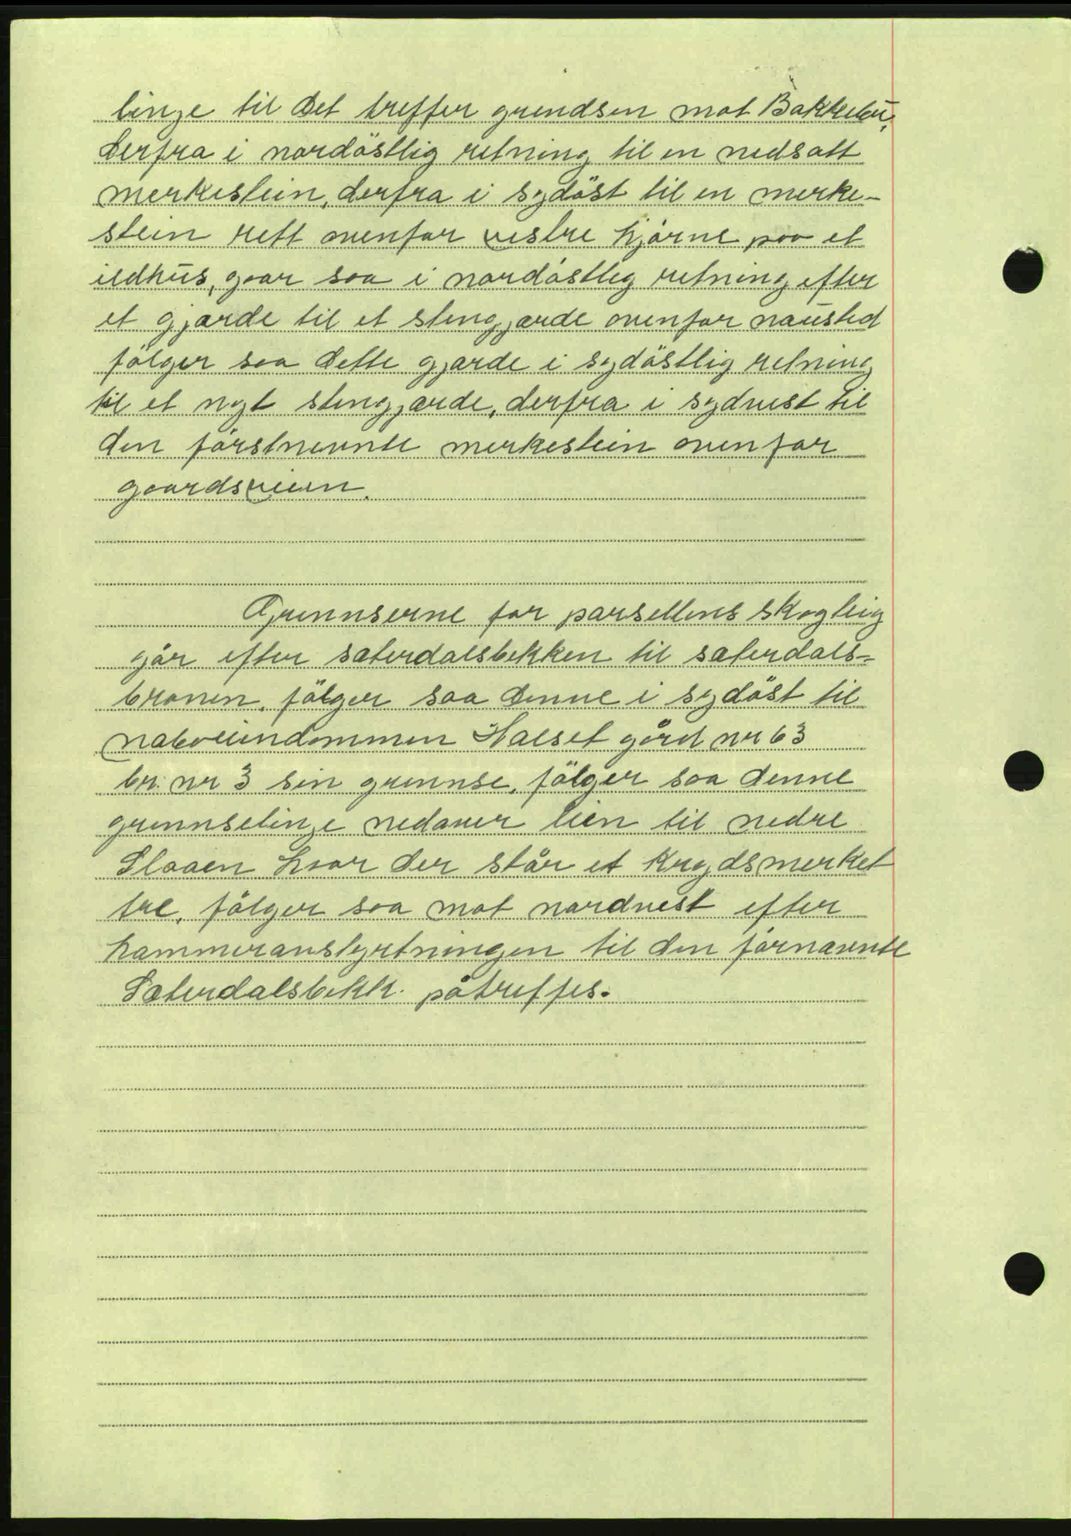 linje til det treffer grendsen mot Bakkebu,
derfra i nordöstlig retning til en nedsatt
merkestein, derfra i sydöst til en merke-
stein rett ovenfor vestre hjörne paa et
ildhus, gaar saa i nordöstlig retning efter
et gjærde til et stengjærde ovenfor nausted
fölger saa dette gjærde i sydöstlig retning
til et nyt stengjærde, derfra i sydvest til
den förstnevnte merkestein ovenfor
gaardsveien.
Grennserne for parsellens skogteig
går efter sæterdalsbekken til sæterdals-
bronen, fölger saa denne i sydöst til
naboeiendommen Halset gård nr 63
br. nr 3 sin grennse, fölger saa denne
grennselinje nedover lien til nedre
Slaaen hvor der står et Krydsmerket
tre, fölger saa mot nordvest efter
hammeranstyrtningen til denförnævnte
Sæterdalsbekk påtreffes.